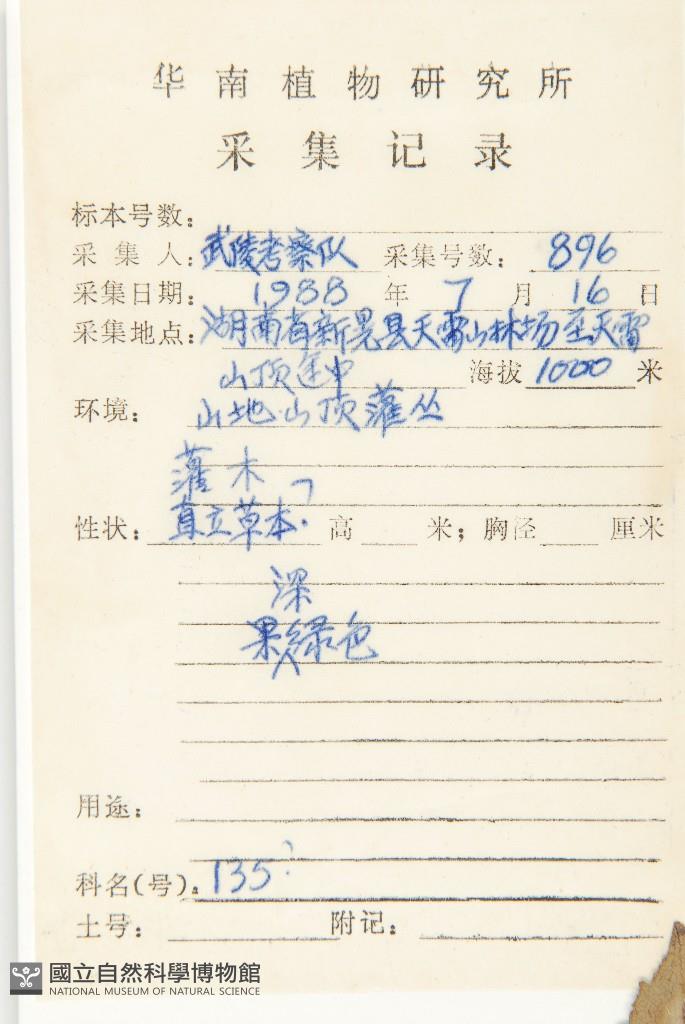 华南植物研究所
采集记录
标本号数:
采集人: 武陵考察队 采集号数: 896
采集日期: 1988 年 7 月 16 日
采集地点: 湖南省新晃县天雷山林场至天雷
山顶途中 海拔 1000 米
环境: 山地山顶灌丛
灌木
性状: 直立草本? 高 米; 胸径 厘米
深
果绿色
用途:
科名(号). 135?
土号: 附记:
國立自然科學博物館
NATIONAL MUSEUM OF NATURAL SCIENCE